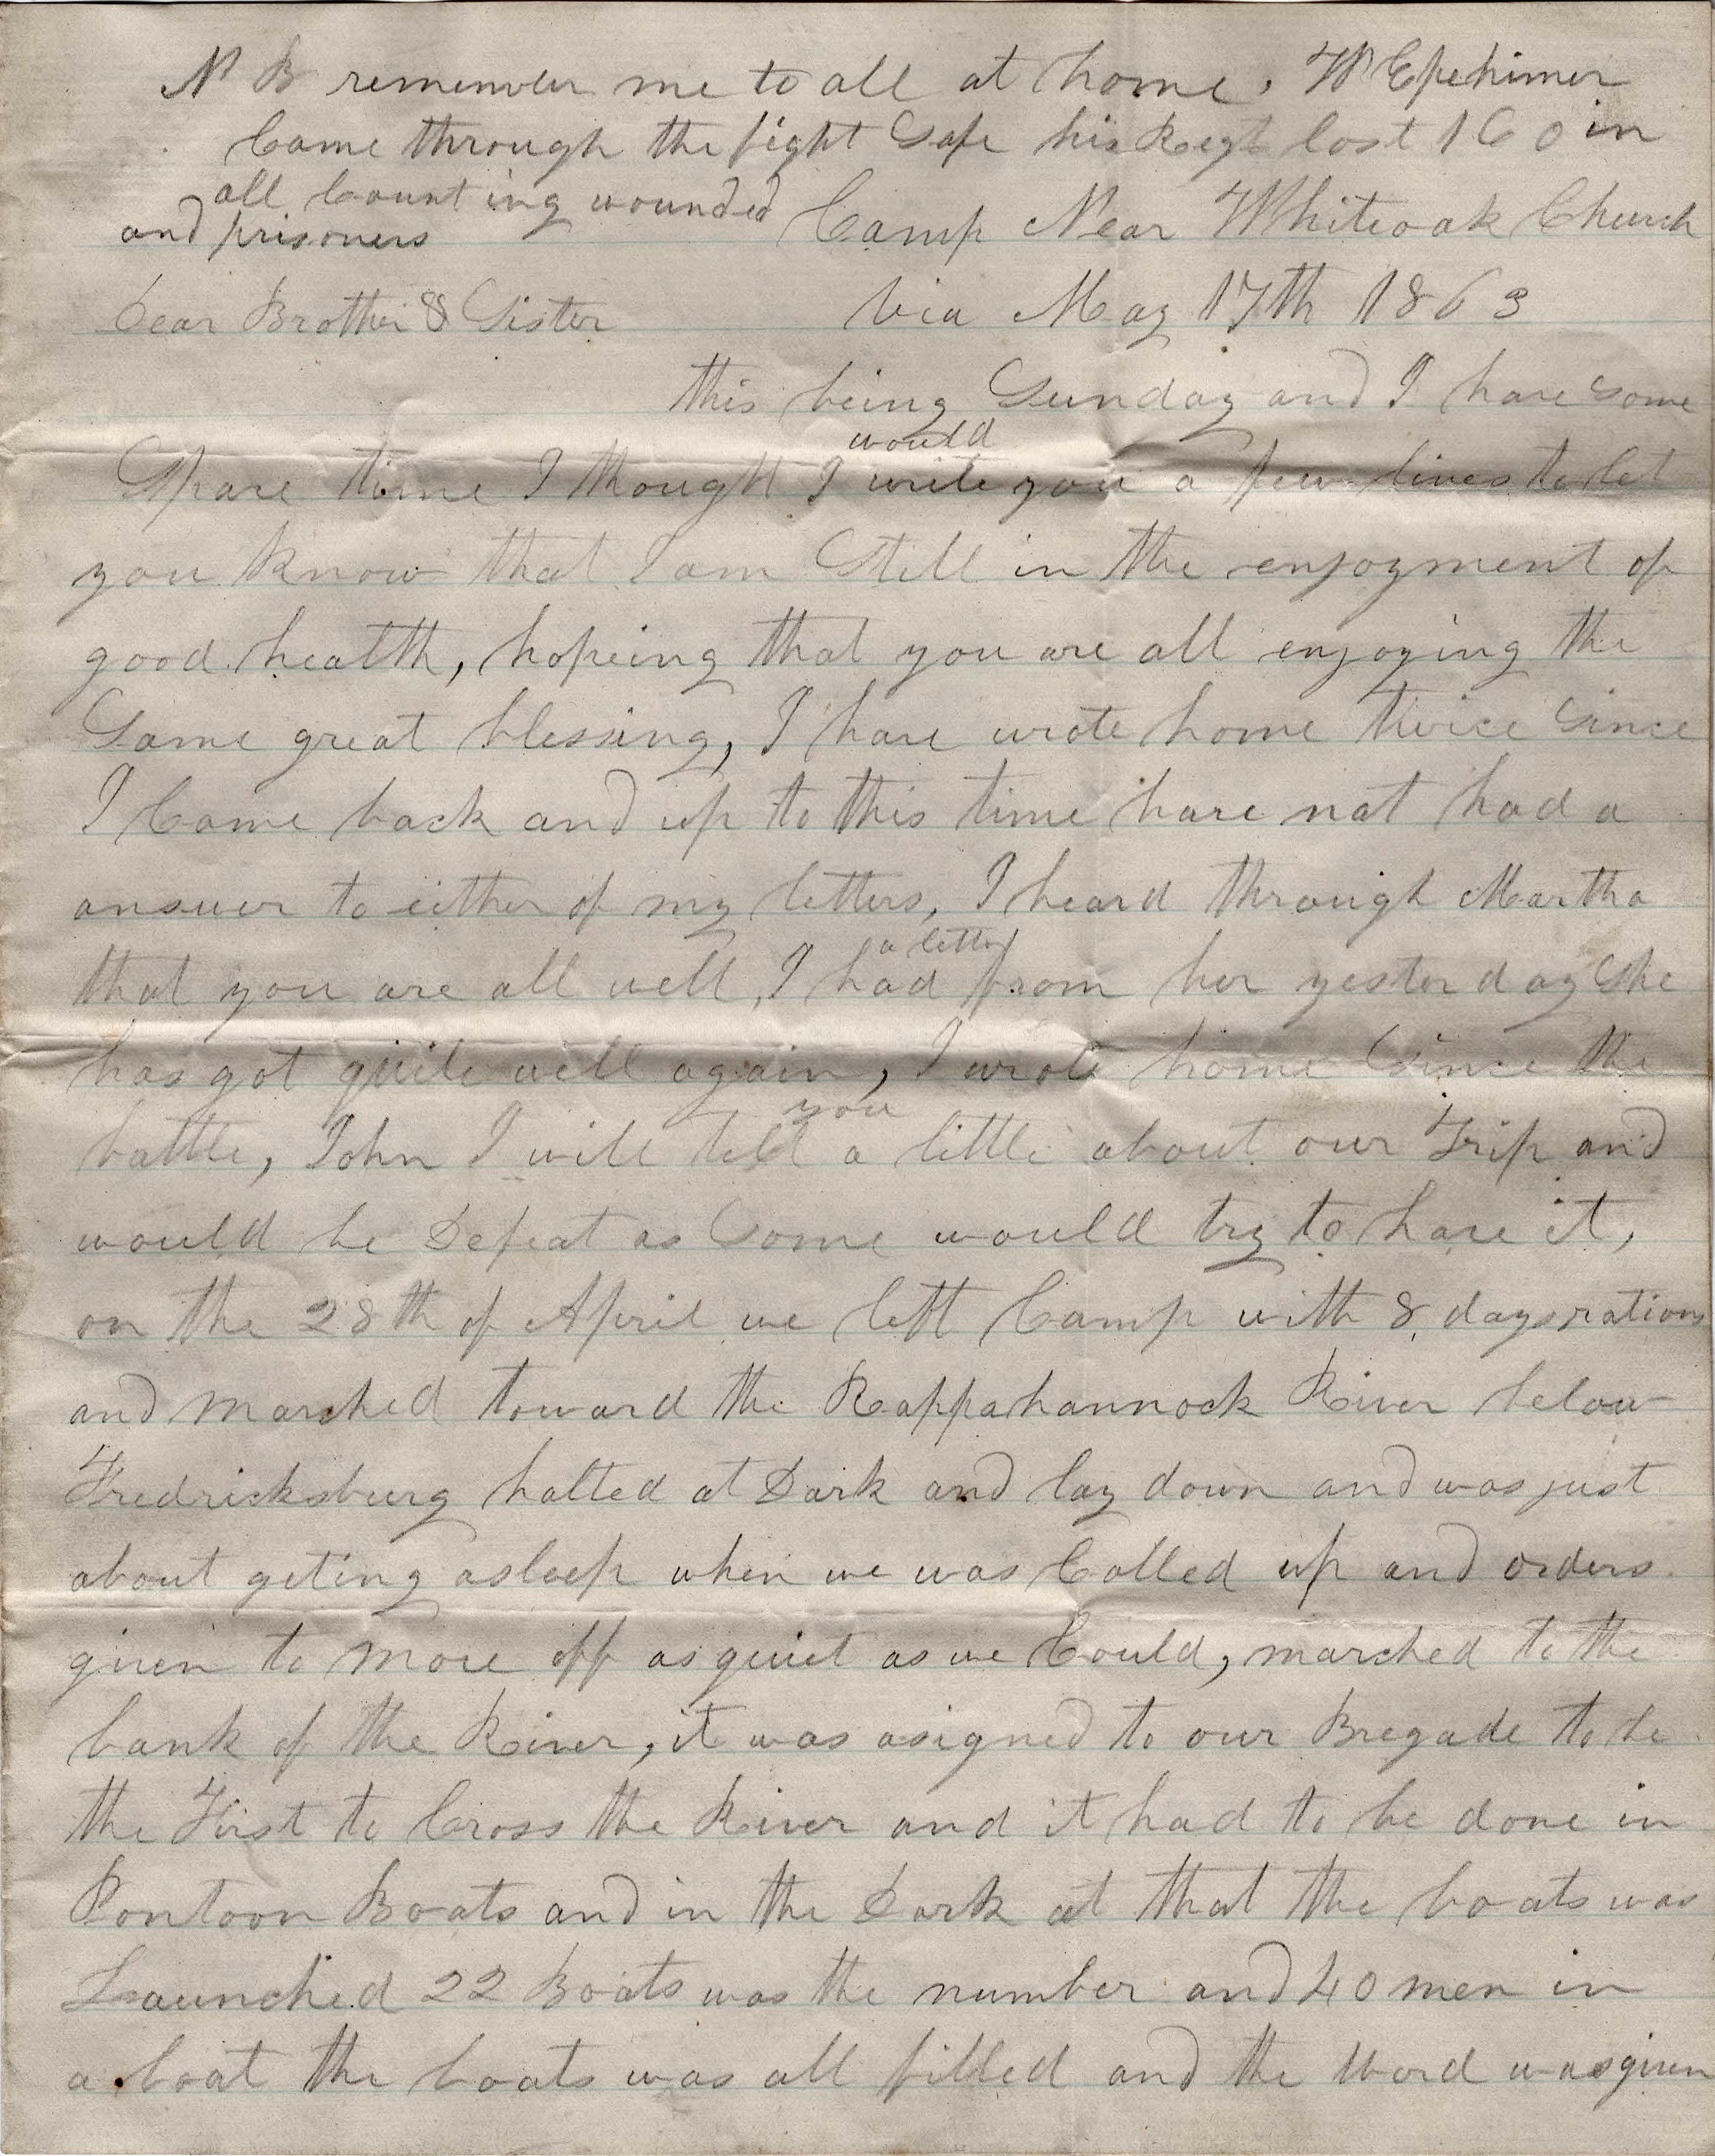 N B remember me to all at home, W Epehimer
Came through the fight Safe his Regt lost 160 in
all Counting wounded
and prisoners
Camp Near Whiteoak Church
Via May 17th 1863
Dear Brother & Sister
this being Sunday and I have some
would
Spare time I thought I write you a few lines to let
you know that I am Still in the enjoyment of
good health, hopeing that you are all enjoying the
Same great blessing, I have wrote home twice Since
I Came back and up to this time have not had a
answer to either of my letters, I heard through Martha
a letter
that you are all well, I had from her yesterday She
has got quite well again, I wrote home Since the
you
battle, John I will tell a little about our Trip and
would be Defeat as Some would try to have it,
on the 28th of April we left Camp with 8 days rations
and marched toward the Rappahannock River below
Fredricksburg halted at Dark and lay down and was just
about geting asleep when we was Called up and orders
given to move off as quiet as we Could, marched to the
bank of the River, it was asigned to our Bregade to be
the First to Cross the River and it had to be done in
Pontoon Boats and in the Dark at that the boats was
Launched 22 Boats was the number and 40 men in
a boat the boats was all filled and the Word was given